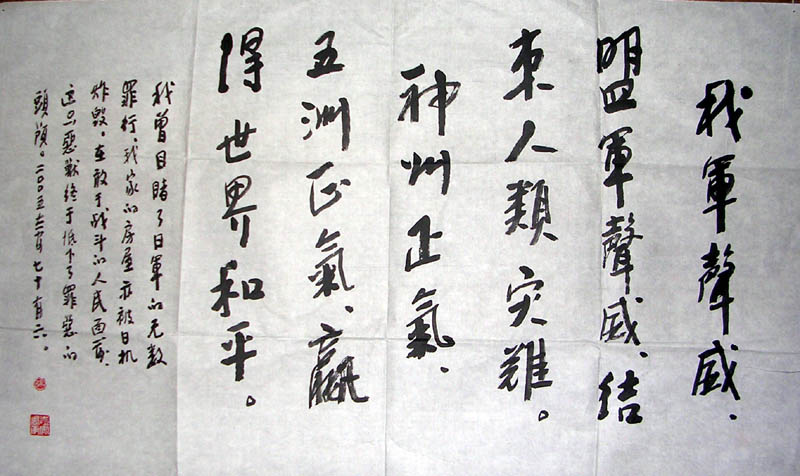 我軍聲威、
盟軍聲威、结
束人類灾難。
神州正氣、
五洲正氣、贏
得世界和平。
我曾目睹了日軍的无数
罪行，我家的房屋亦被日机
炸毁。在敢于战斗的人民面前，
这只惡獸终于低下了罪惡的
頭顱。二〇〇五年 七十有六。